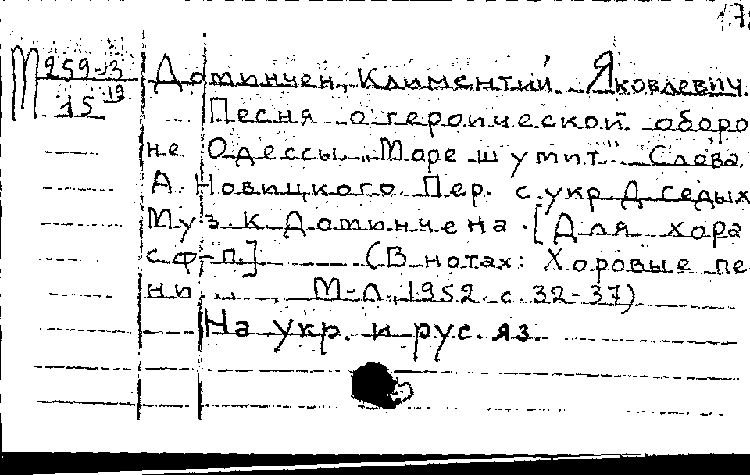 178
М 259-3 Доминчен, Климентий Яковлевич.
15 19 Песня о героической оборо
не Одессы „Море шумит" Слова
А. Новицкого. Пер. с укр Д. Седых
Муз. К. Доминчена. [Для хора
с ф-п.] (В нотах: Хоровые пе
ни... М-Л, 1952 с. 32-37)
На укр. и рус. яз.